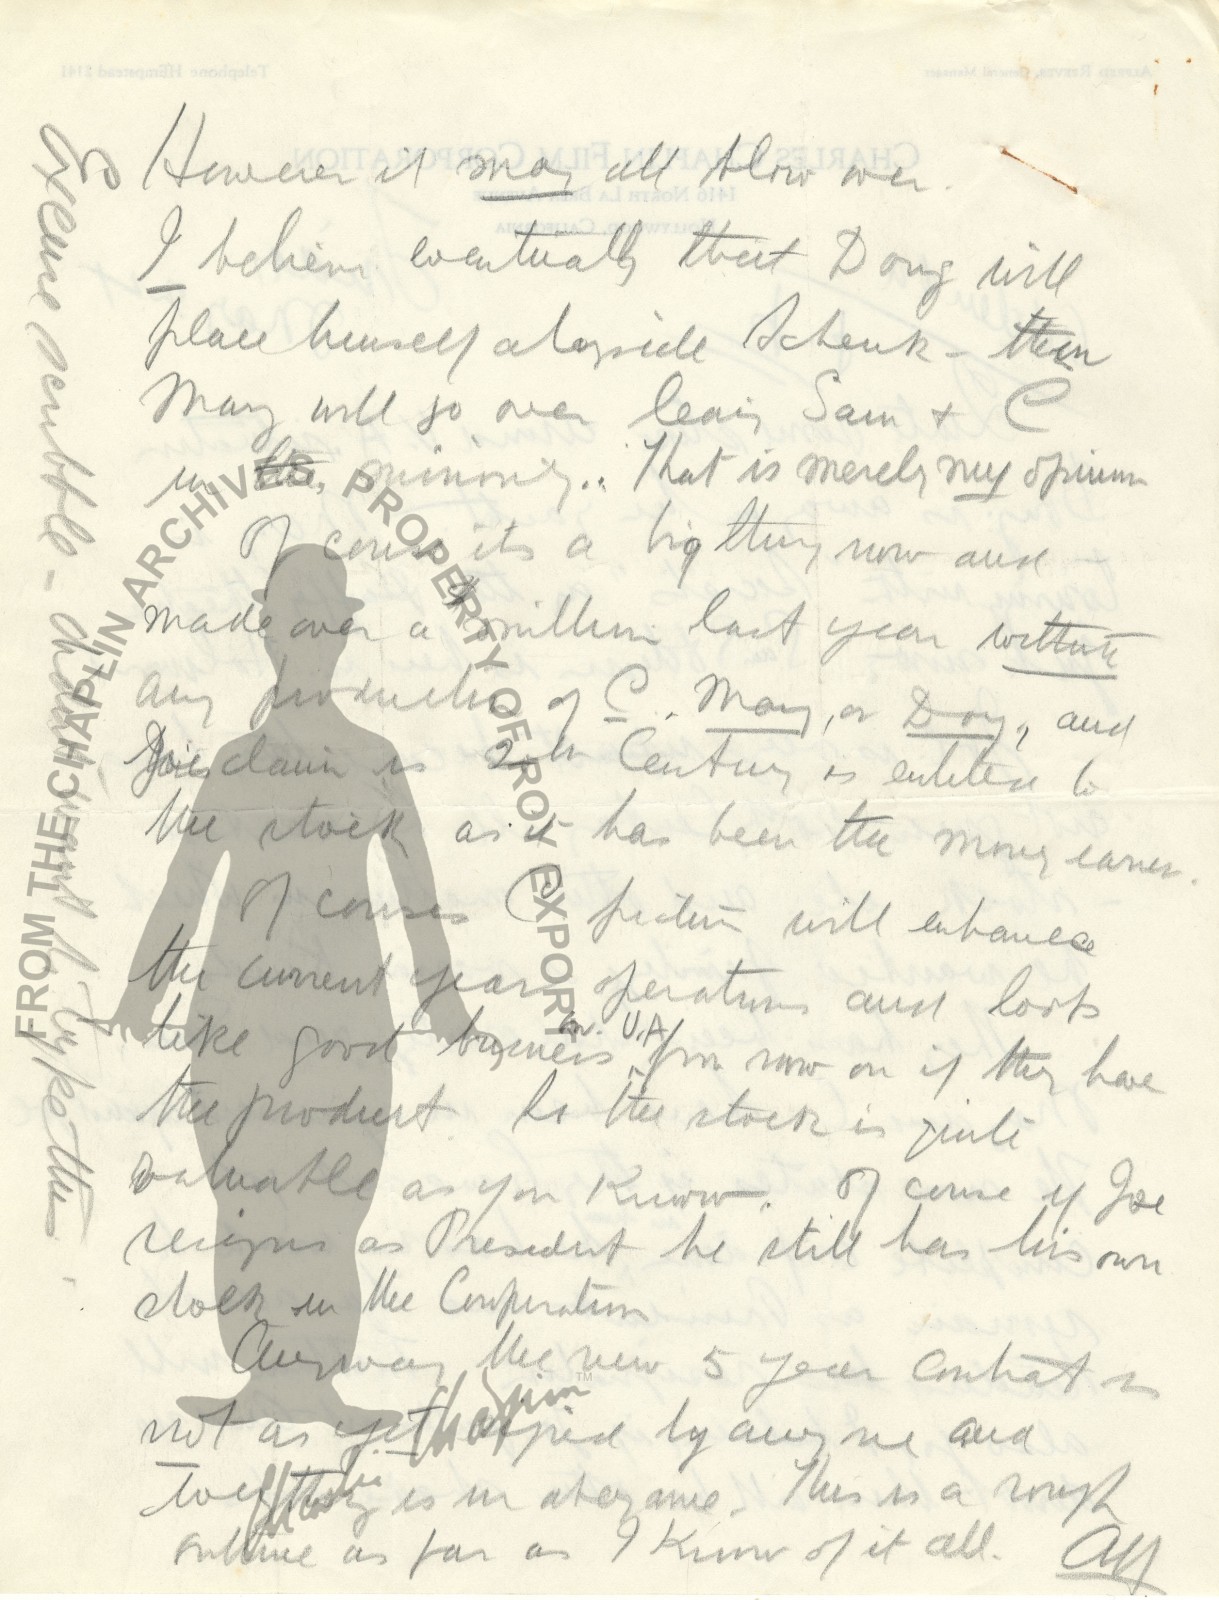 However it may all blow over.
I believe eventually that Doug will
place himself alongside Schenk - then
Mary will go over leaving Sam & C
in the minority.. That is merely my opinion
Of course its a big thing now and
made over a million last year without
any production of C. Mary, or Doug, and
Joe's claim is 20th Century is entitled to
the stock as it has been the money earner.
Of course C picture will enhance
the current years operations and looks
like good business for U.A. from now on if they have
the product. So the stock is quite
valuable as you know. Of course if Joe
resigns as President he still has his own
stock in the Corporation
Anyway the new 5 year contract is
not as yet signed by anyone and
everything is in abeyance. This is a rough
outline as far as I know of it all. Alf
Excuse scribble - didn't want to type this.
FROM THE CHAPLIN ARCHIVES. PROPERTY OF ROY EXPORT
TM
Charlie Chaplin
ALFRED REEVES, General Manager
Telephone HEmpstead 2141
CHARLES CHAPLIN FILM CORPORATION
1416 NORTH LA BREA AVENUE
HOLLYWOOD, CALIFORNIA